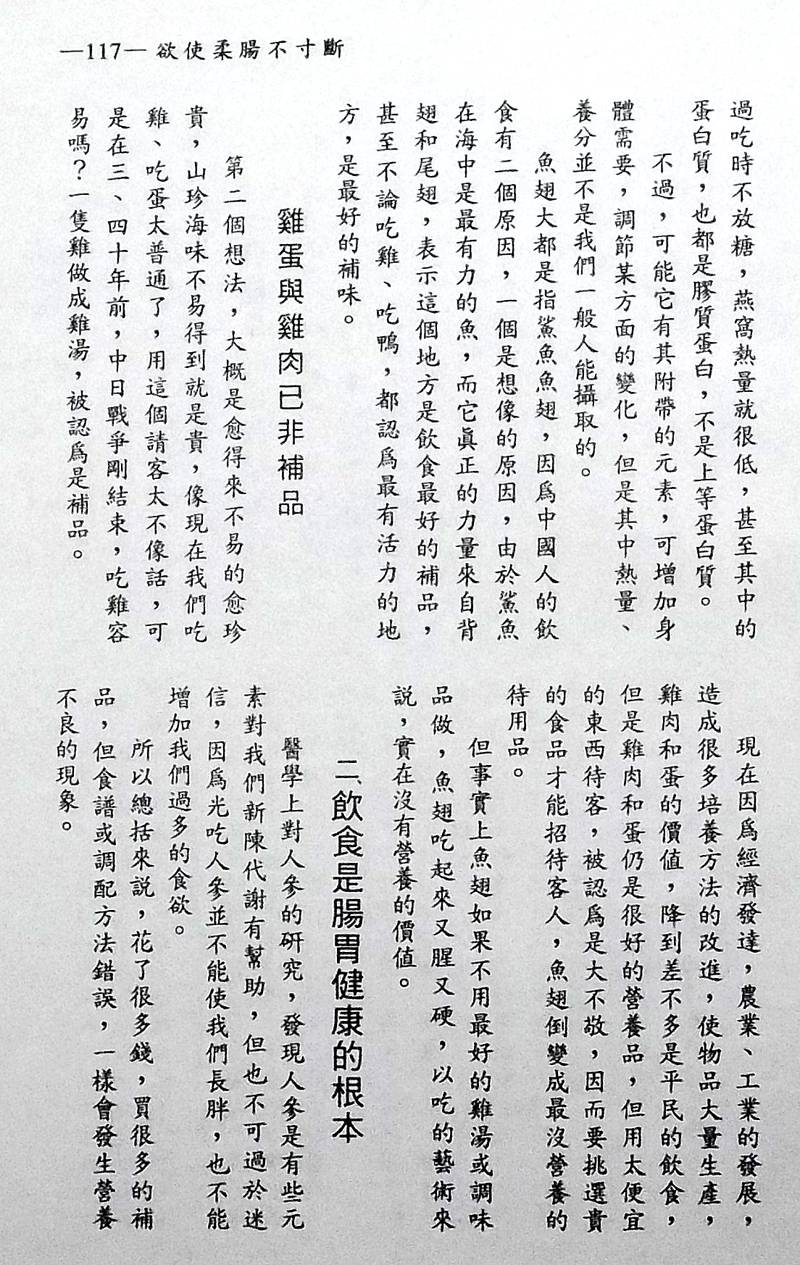 —117— 欲使柔腸不寸斷
過吃時不放糖，燕窩熱量就很低，甚至其中的
蛋白質，也都是膠質蛋白，不是上等蛋白質。
不過，可能它有其附帶的元素，可增加身
體需要，調節某方面的變化，但是其中熱量、
養分並不是我們一般人能攝取的。
魚翅大都是指鯊魚魚翅，因爲中國人的飲
食有二個原因，一個是想像的原因，由於鯊魚
在海中是最有力的魚，而它眞正的力量來自背
翅和尾翅，表示這個地方是飲食最好的補品，
甚至不論吃雞、吃鴨，都認爲最有活力的地
方，是最好的補味。
雞蛋與雞肉已非補品
第二個想法，大概是愈得來不易的愈珍
貴，山珍海味不易得到就是貴，像現在我們吃
雞、吃蛋太普通了，用這個請客太不像話，可
是在三、四十年前，中日戰爭剛結束，吃雞容
易嗎？一隻雞做成雞湯，被認爲是補品。
現在因爲經濟發達，農業、工業的發展，
造成很多培養方法的改進，使物品大量生產，
雞肉和蛋的價值，降到差不多是平民的飲食，
但是雞肉和蛋仍是很好的營養品，但用太便宜
的東西待客，被認爲是大不敬，因而要挑選貴
的食品才能招待客人，魚翅倒變成最沒營養的
待用品。
但事實上魚翅如果不用最好的雞湯或調味
品做，魚翅吃起來又腥又硬，以吃的藝術來
説，實在沒有營養的價值。
二、飲食是腸胃健康的根本
醫學上對人參的研究，發現人參是有些元
素對我們新陳代謝有幫助，但也不可過於迷
信，因爲光吃人參並不能使我們長胖，也不能
增加我們過多的食欲。
所以總括來説，花了很多錢，買很多的補
品，但食譜或調配方法錯誤，一樣會發生營養
不良的現象。